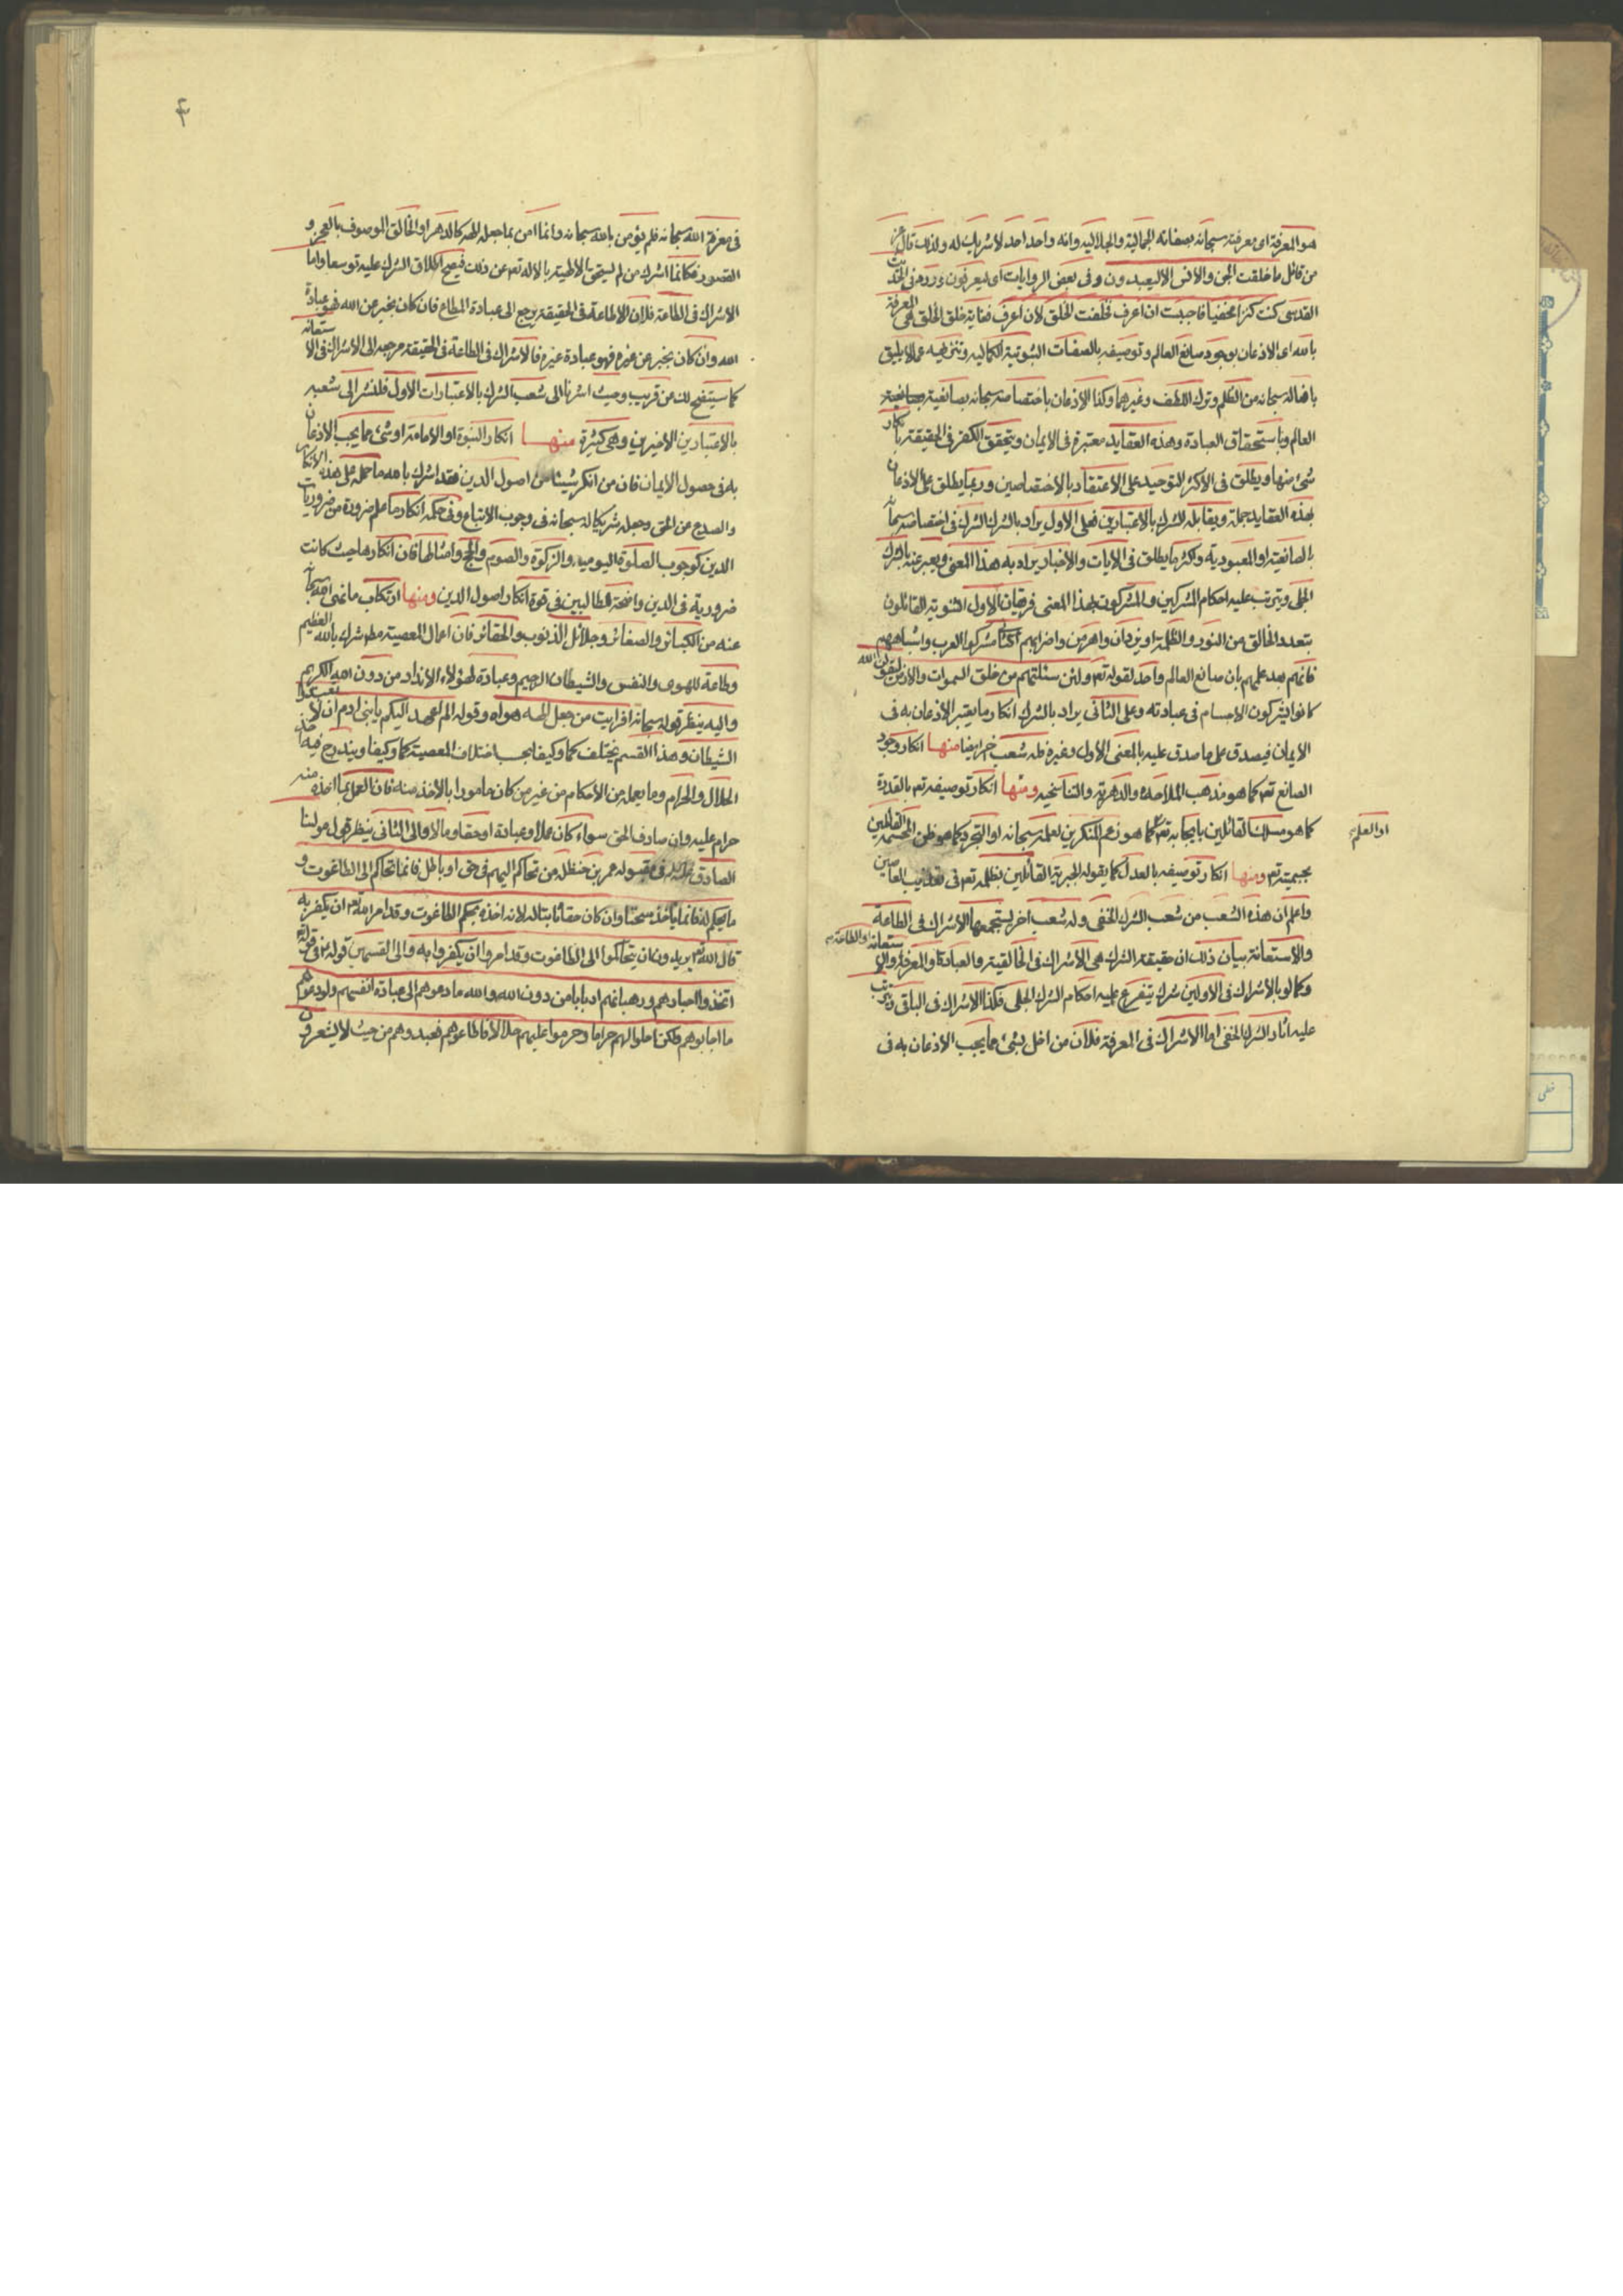 هو المعرفة اى معرفته سبحانه بصفاته الجمالية والجلاليه وانه واحد احد لا شريك له ولذلك قال عز
من قائل ما خلقت الجن والانس الا ليعبدون وفى بعض الروايات اى ليعرفون وورد فى الحديث
القدسى كنت كنزا مخفيا فاحببت ان اعرف فخلقت الخلق لان اعرف فغاية خلق الخلق هى المعرفة
بالله اى الاذعان بوجود صانع العالم وتوصيفه بالصفات الثبوتية الكماليه وتنزيهه عما لا يليق
بافعاله سبحانه من الظلم وترك اللطف وغيرهما وكذا الاذعان باختصاصه سبحانه بصانعية
العالم وباستحقاق العبادة وهذه العقايد معتبرة فى الايمان ويتحقق الكفر فى الحقيقة بانكار
شىء منها ويطلق فى الاكثر التوحيد على الاعتقاد بالاختصاصين وربما يطلق على الاذعان
بهذه العقايد جملة ويقابله الشرك بالاعتبارين فعلى الاول يراد بالشرك الشرك فى اختصاصه سبحانه
بالصانعية او المعبودية واكثر ما يطلق فى الايات والاخبار يراد به هذا المعنى ويعبر عنه بالشرك
الجلى ويترتب عليه احكام المشركين والمشركون بهذا المعنى فرقتان الاول الثنوية القائلون
بتعدد الخالق من النور والظلمة او يزدان واهرمن واضرابهم الثانى مشركوا العرب واشباههم
فانهم بعد علمهم بان صانع العالم واحد لقوله تعم ولئن سئلتهم من خلق السموات والارض ليقولن الله
كانوا يشركون الاجسام فى عبادته وعلى الثانى يراد بالشرك انكار ما يعتبر الاذعان به فى
الايمان فيصدق على ما صدق عليه بالمعنى الاول وغيره فله شعب اخر ايضا منها انكار وجود
الصانع تعم كما هو مذهب الملاحده والدهرية والتناسخيه ومنها انكار توصيفه تعم بالقدرة
كما هو مسلك القائلين بايجابه تعم او العلم كما هو زعم المنكرين لعلمه سبحانه او التجرد كما هو ظن المجسمة القائلين
بجسميته تعم ومنها انكار توصيفه بالعدل كما يقوله الجبرية القائلين بظلمه تعم فى تعذيب العاصين
واعلم ان هذه الشعب من شعب الشرك الخفى وله شعب اخر يستجمعها الاشراك فى الطاعة
والاستعانة بيان ذلك ان حقيقة الشرك هى الاشراك فى الخالقية والعبادة او المعرفة او الطاعة والاستعانة
وكما لو بالاشراك فى الاولين شرك يتفرع عليه احكام الشرك الجلى فكذا الاشراك فى الباقى يترتب
عليه اثار الشرك الخفى اما الاشراك فى المعرفة فلان من اخل بشىء مما يجب الاذعان به فى
۴
فى معرفة الله سبحانه فلم يؤمن بالله سبحانه وانما امن بما جعله الهه كالدهر او الخالق الموصوف بالعجز و
القصور فكانما اشرك من لم يستحق بالالهية بالاله تعم عن ذلك فيصح اطلاق الشرك عليه توسعا واما
الاشراك فى الطاعة فلان الاطاعة فى الحقيقة يرجع الى عبادة المطاع فان كان يخبر عن الله فهو عبادة
الله وان كان يخبر عن غيره فهو عبادة غيره فالاشراك فى الطاعة فى الحقيقة مرجعه الى الاشراك فى الاستعانة
كما سيتضح لك عن قريب وحيث اشرنا الى شعب الشرك بالاعتبارات الاول فلنشر الى شعبه
بالاعتبارين الاخيرين وهى كثيرة منها انكار النبوة او الامامة او شىء مما يجب الاذعان
به فى حصول الايمان فان من انكر شيئا من اصول الدين فقد اشرك بالله ما حمله على هذه الانكار
والصدع عن الحق وجعله شريكا له سبحانه فى وجوب الاتباع وفى حكمه انكار ما علم ضرورة من ضروريات
الدين كوجوب الصلوة اليوميه والزكوة والصوم والحج وامثالها فان انكارها حيث كانت
ضرورية فى الدين واضحة للطالبين فى قوة انكار اصول الدين ومنها ارتكاب ما نهى الله سبحانه
عنه من الكبائر والصغائر وجلائل الذنوب والحقائر فان اعمال المعصية مطم شرك بالله العظيم
وطاعة للهوى والنفس والشيطان الرجيم وعبادة لهؤلاء الانداد من دون الله الكريم
واليه ينظر قوله سبحانه افرايت من جعل الهه هواه وقوله الم اعهد اليكم يا بنى ادم ان لا تعبدوا
الشيطان وهذا القسم يختلف كما وكيفا بحسب اختلاف المعصية كما وكيفا ويندرج فيه اخذ
الحلال والحرام وما يعمله من الاحكام من غير من كان مامورا بالاخذ منه فان العمل بما اخذه منه
حرام عليه وان صادف الحق سواء كان عملا او عبادة او حقا او مالا والى الثانى ينظر قول مولينا
الصادق فى مقبوله عمر بن حنظله من تحاكم اليهم فى حق او باطل فانما تحاكم الى الطاغوت و
ما يحكم له فانما ياخذ سحتا وان كان حقا ثابتا له لانه اخذه بحكم الطاغوت وقد امر الله تعم ان يكفر به
قال الله تعم يريدون ان يتحاكموا الى الطاغوت وقد امروا ان يكفروا به والى القسمين قوله فى قوله تعم
اتخذوا احبارهم ورهبانهم اربابا من دون الله والله ما دعوهم الى عبادة انفسهم ولو دعوهم
ما اجابوهم ولكن احلوا لهم حراما وحرموا عليهم حلالا فاطاعوهم فعبدوهم من حيث لا يشعرون
او العلم
او الطاعة
خطى